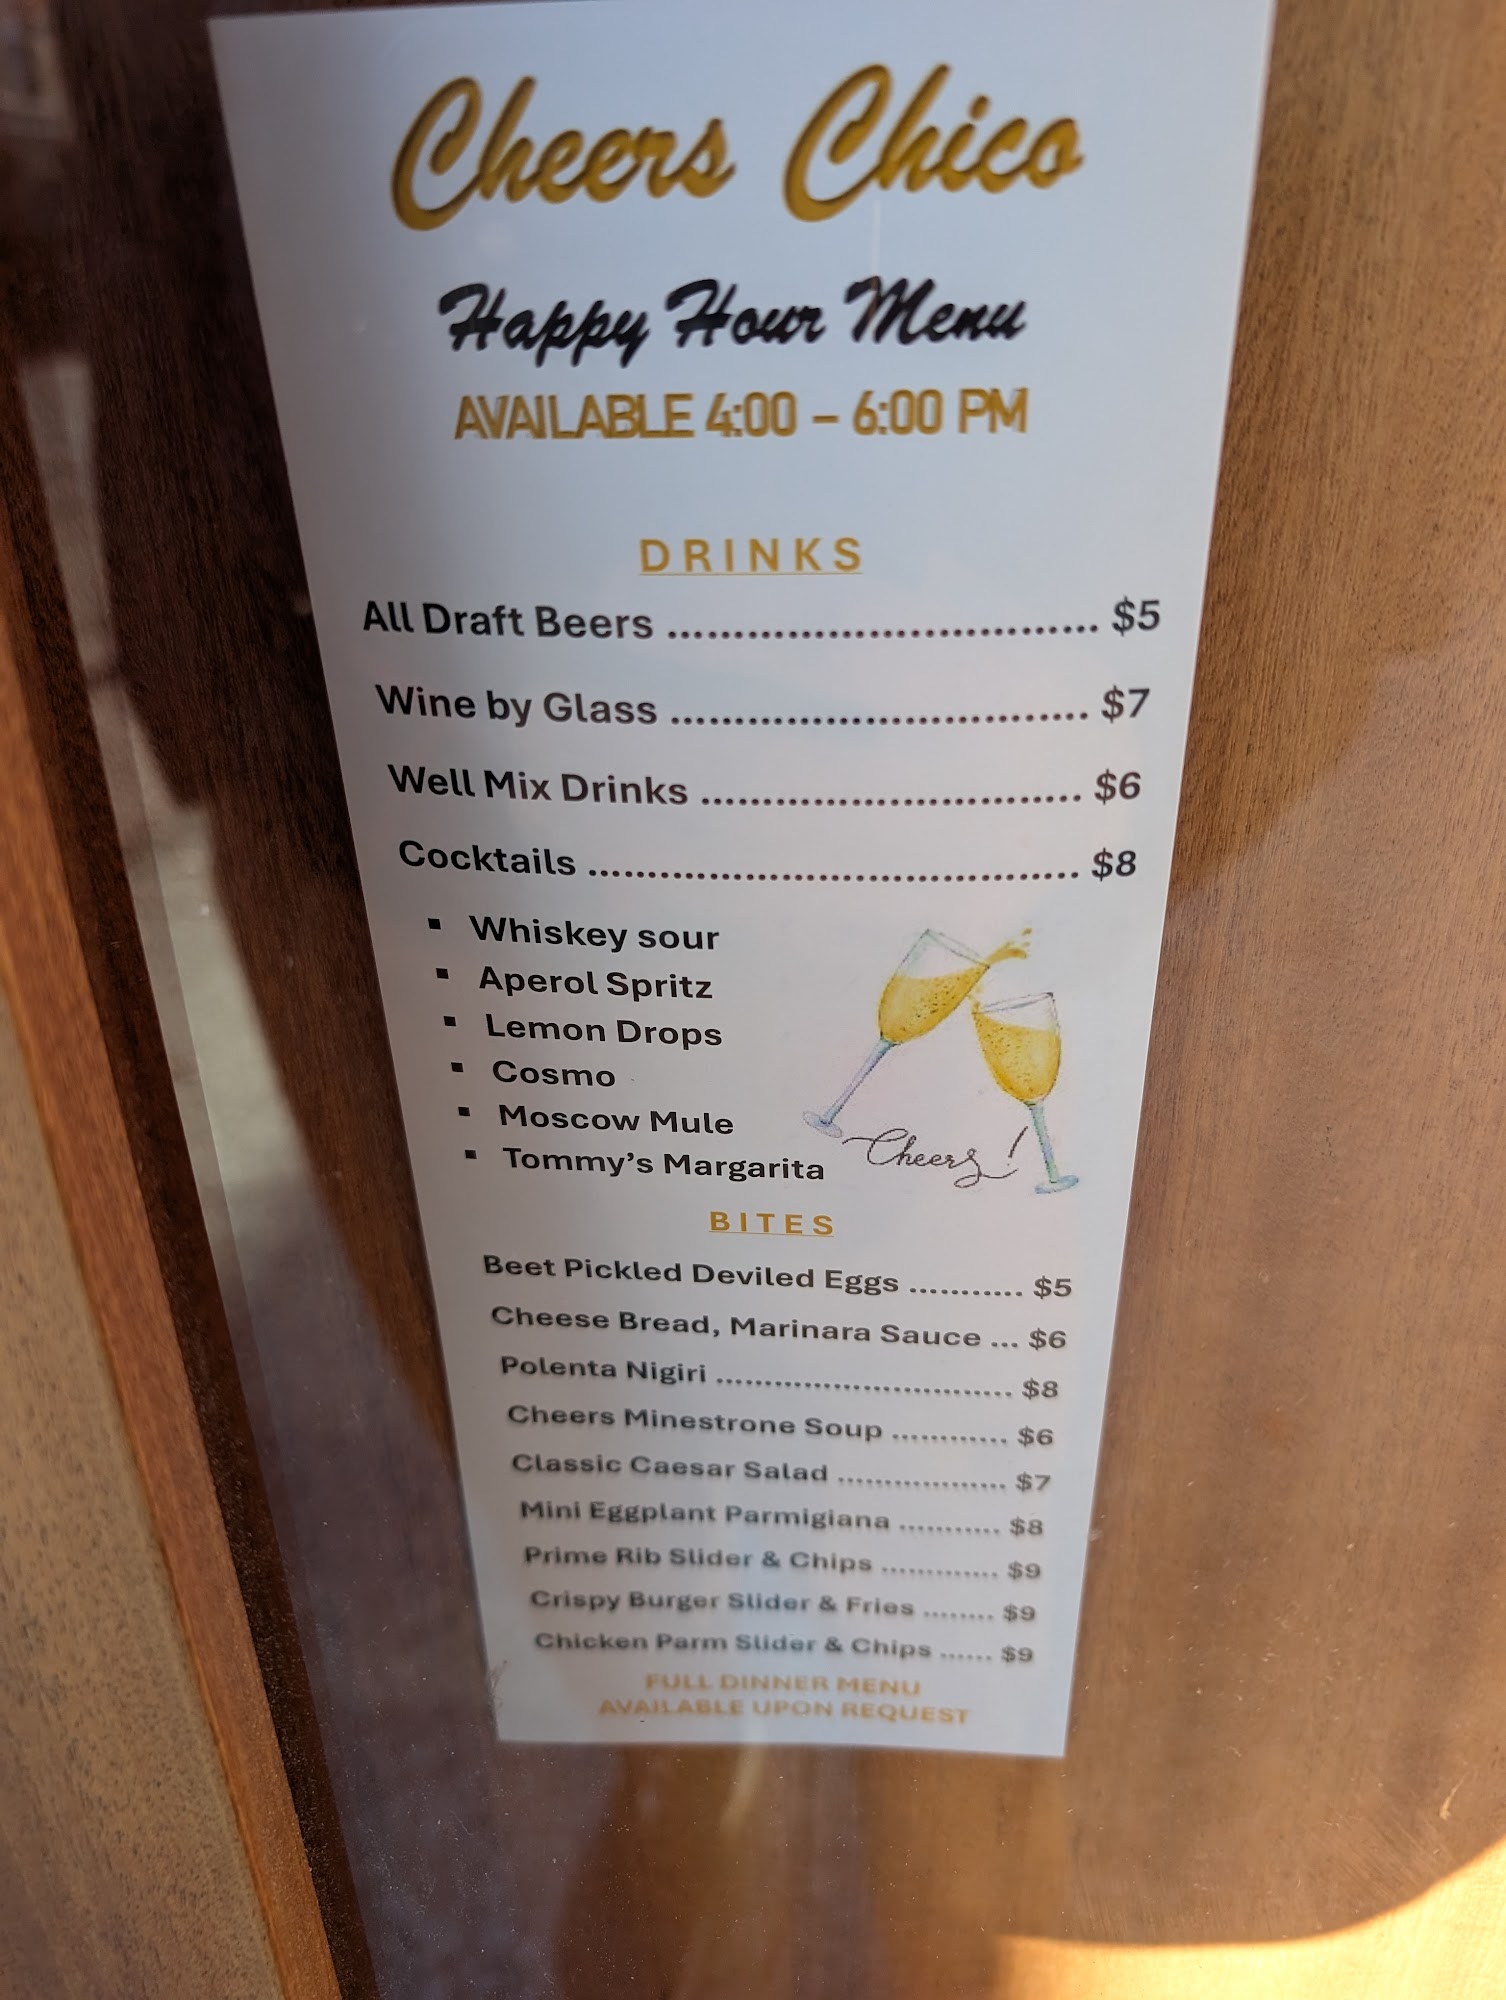 Cheers Chico
Happy Hour Menu
AVAILABLE 4:00 – 6:00 PM
DRINKS
All Draft Beers ................................ $5
Wine by Glass ............................... $7
Well Mix Drinks ............................ $6
Cocktails ..................................... $8
▪ Whiskey sour
▪ Aperol Spritz
▪ Lemon Drops
▪ Cosmo
▪ Moscow Mule
▪ Tommy’s Margarita
Cheers!
BITES
Beet Pickled Deviled Eggs ........... $5
Cheese Bread, Marinara Sauce ... $6
Polenta Nigiri .............................. $8
Cheers Minestrone Soup ............ $6
Classic Caesar Salad .................. $7
Mini Eggplant Parmigiana ........... $8
Prime Rib Slider & Chips ............. $9
Crispy Burger Slider & Fries ........ $9
Chicken Parm Slider & Chips ...... $9
FULL DINNER MENU
AVAILABLE UPON REQUEST